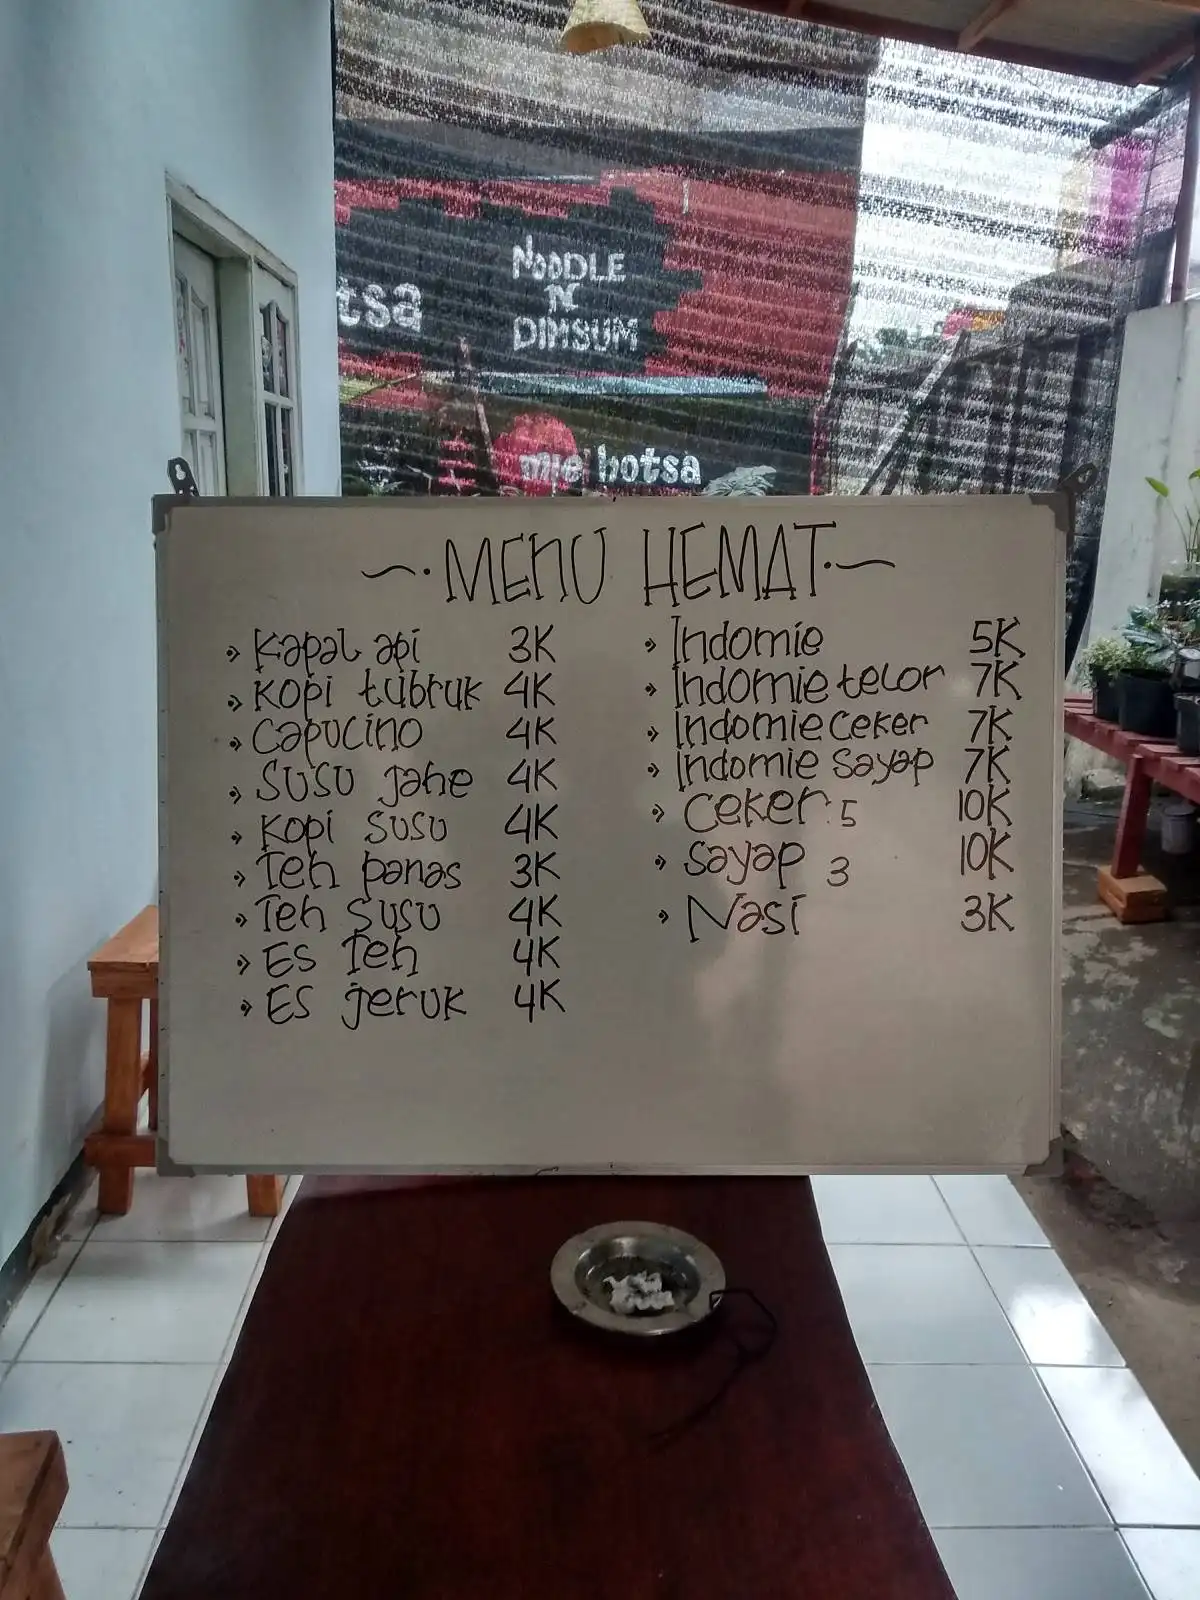 NOODLE
N
DIMSUM
tsa
mie botsa
MENU HEMAT
Kapal api 3K
Kopi tubruk 4K
Capucino 4K
Susu jahe 4K
Kopi susu 4K
Teh panas 3K
Teh susu 4K
Es Teh 4K
Es jeruk 4K
Indomie 5K
Indomie telor 7K
Indomie ceker 7K
Indomie sayap 7K
Ceker 5 10K
Sayap 3 10K
Nasi 3K